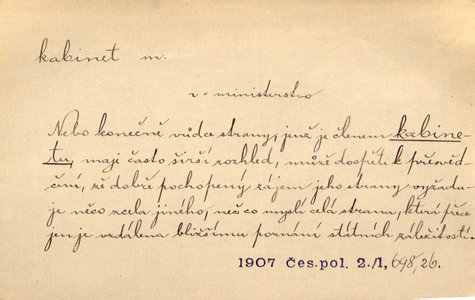 kabinet m.
v = ministerstvo
Nebo konečně vůdce strany, jenž je členem kabine-
tu, maje často širší rozhled, může dospěti k přesvěd-
čení, že dobře pochopený zájem jeho strany vyžadu-
je něco zcela jiného, než co myslí celá strana, která přece
jen je vzdálena bližšímu poznání státních záležitostí.
1907 Čes. pol. 2./1, 698, 26.